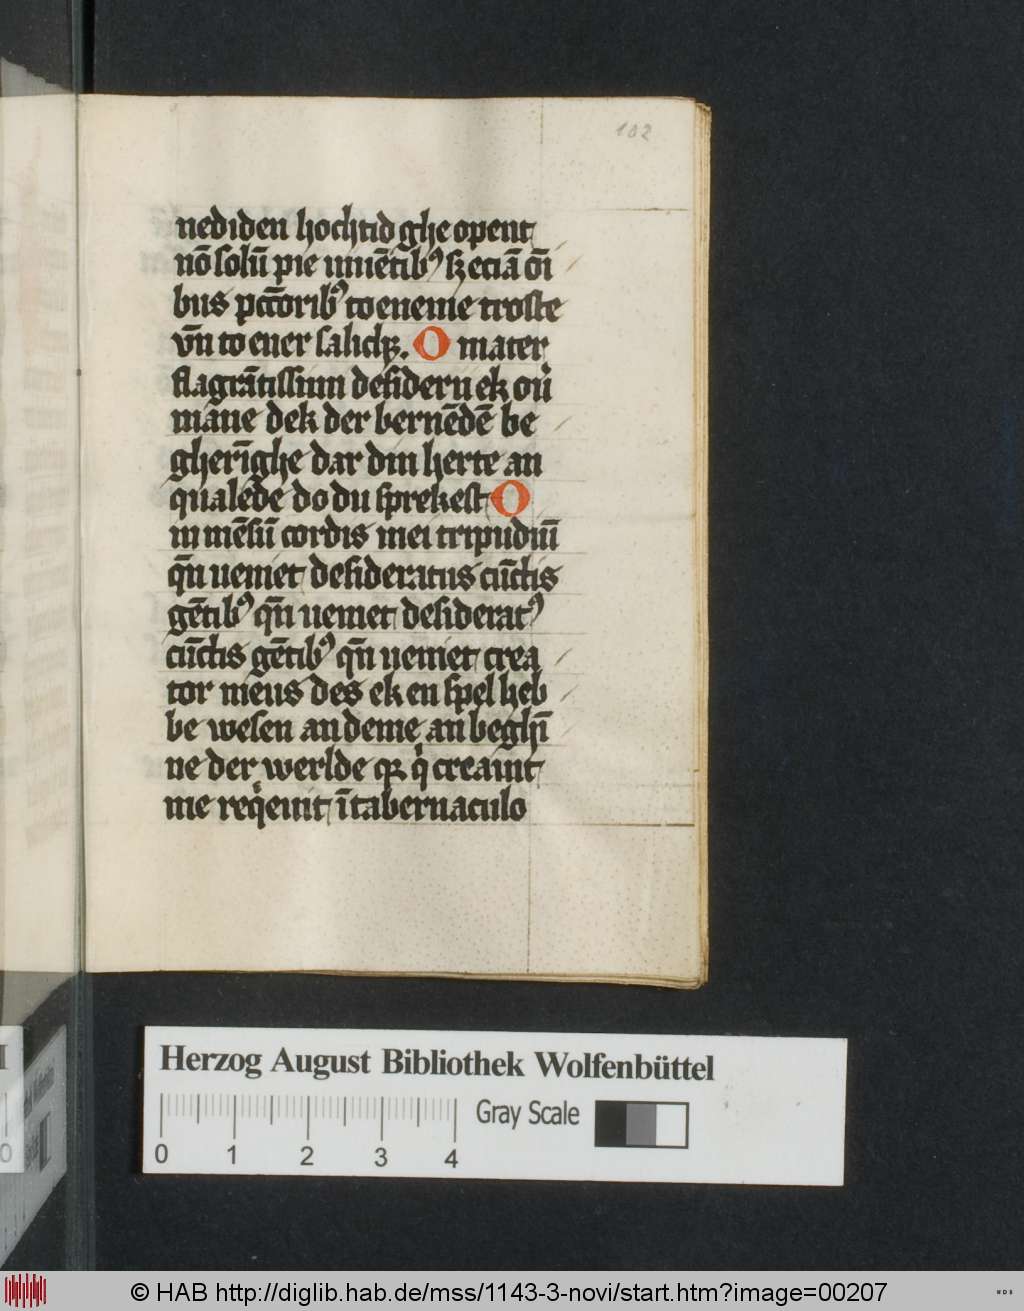 102
nediden hochtid ghe opent
nō solū pie uiuētibꝰ sꝫ eciā oī
bus pctōribꝰ to eneme troste
vn̄ to ener salichꝫ. O mater
flagrātissimi desiderii ek ou̓
mane dek der bernēdē be
gherīghe dar din herte an
qualede do du sprekest O
in mēsū cordis mei tripudiū
qn̄ ueniet desideratus cūctis
gētibꝰ qn̄ ueniet desideratꝰ
cūctis gētibꝰ qn̄ ueniet crea
tor meus des ek en spel heb
be wesen an deme an beghī
ne der werlde qꝫ qͥ creauit
me reqͥeuit ī tabernaculo
Herzog August Bibliothek Wolfenbüttel
Gray Scale
0 1 2 3 4
© HAB http://diglib.hab.de/mss/1143-3-novi/start.htm?image=00207